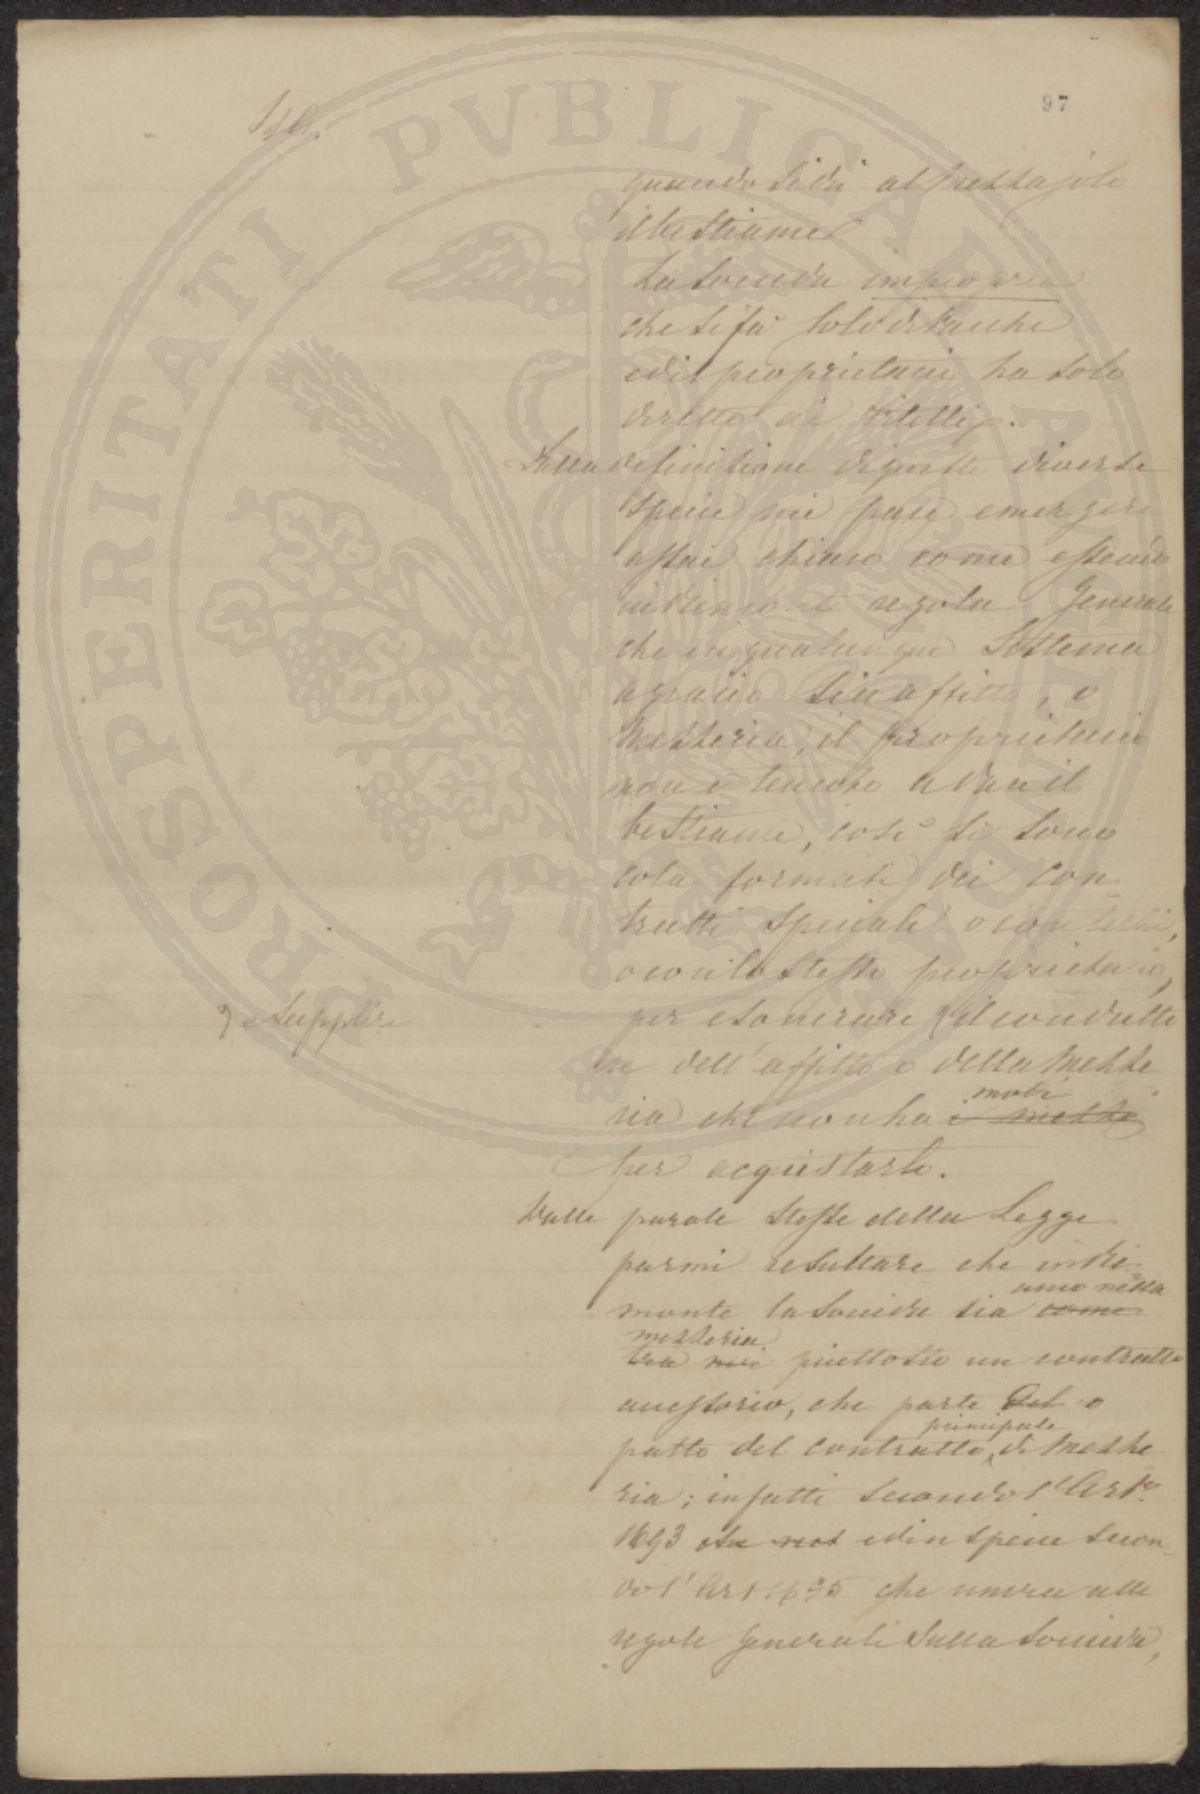 97
149.
quando si dà al Mezzajolo
il bestiame
La Soccida impropria
che si fà solo di Vacche
ed il proprietario ha solo
diretto ai Vitelli.
Dalla definizione di queste diverse
specie mi pare emergere
assai chiaro come essendo
regola Generale
che in qualunque Sistema
agrario sia affitto, o
Mezzeria, il proprietario
non è tenuto a dare il
bestiame, così si sono
colà formati dei Con-
tratti speciali o con terzi,
o con lo stesso proprietario,
e supplire
per esonerare il condutto
re dell'affitto o della Mezze
ria che non ha i mezzi modi
per acquistarlo.
Dalle parole stesse della Legge
parmi resultare che indi-
monte la Soccida sia come anco nella
mezzeria
tra noi piuttosto un contratto
accessorio, che parte del o
patto del contratto principale di Mezze
ria; infatti secondo l'Art.º
1693 ed in specie secon-
do l'Art 1695 che unera alle
regole Generali sulla Soccida,
PROSPERITATI PVBLICAE AVGENDAE